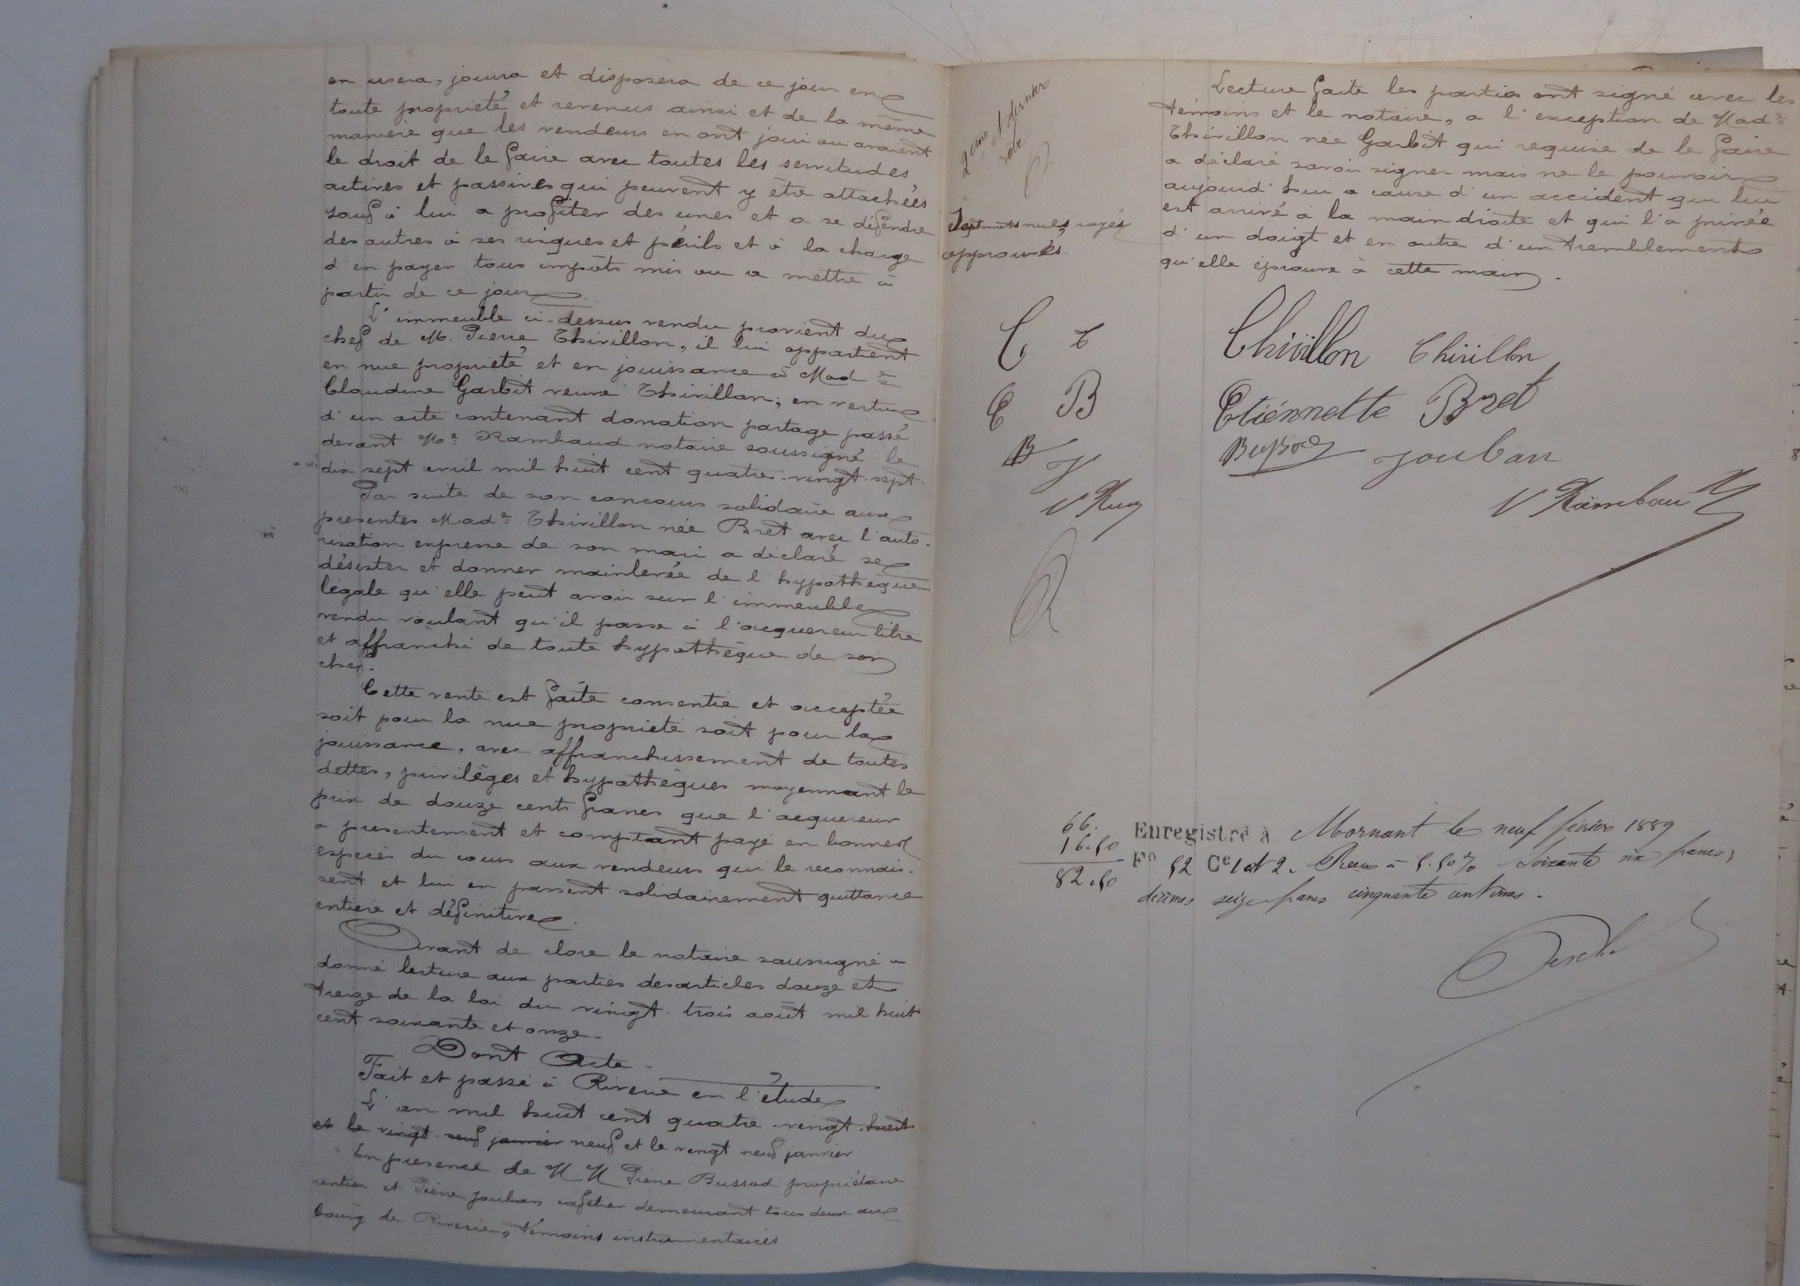 en usera, jouira et disposera de ce jour en
toute propriété et revenus ainsi et de la même
manière que les vendeurs en ont joui ou avaient
le droit de le faire avec toutes les servitudes
actives et passives qui peuvent y être attachées
sauf à lui a profiter des unes et a se défendre
des autres à ses risques et périls et à la charge
d'en payer tous impôts mis ou a mettre à
partir de ce jour.
L'immeuble ci-dessus vendu provient du
chef de M. Pierre Thivillon, il lui appartient
en nue propriété et en jouissance à Made
Claudine Garbit veuve Thivillon, en vertu
d'un acte contenant donation partage passé
devant Me Rambaud notaire soussigné le
dix sept avril mil huit cent quatre-vingt-sept.
Par suite de son concours solidaire aux
présentes Made Thivillon née Bret avec l'auto-
risation expresse de son mari a déclaré se
désister et donner mainlevée de l'hypothèque
légale qu'elle peut avoir sur l'immeuble
vendu voulant qu'il passe à l'acquereur libre
et affranchi de toute hypothèque de son
chef.
Cette vente est faite consentie et acceptée
soit pour la nue propriété soit pour la
jouissance, avec affranchissement de toutes
dettes, privilèges et hypothèques moyennant le
prix de douze cents francs que l'acquereur
a présentement et comptant payé en bonnes
espèces du cours aux vendeurs qui le reconnais-
sent et lui en passent solidairement quittance
entière et définitive.
Avant de clore le notaire soussigné a
donné lecture aux parties des articles douze et
treize de la loi du vingt-trois août mil huit
cent soixante et onze.
Dont Acte.
Fait et passé à Riverie en l'étude
L'an mil huit cent quatre-vingt-huit
et le vingt-neuf janvier neuf et le vingt neuf janvier
En présence de M M Pierre Bussod propriétaire
rentier et Pierre Jouban cafetier demeurant tous deux au
bourg de Riverie, témoins instrumentaires
2eme et dernier
role
Sept mots nuls rayés
approuvés.
Lecture faite les parties ont signé avec les
témoins et le notaire, a l'exception de Made
Thivillon née Garbit qui requise de le faire
a déclaré savoir signer mais ne le pouvoir
aujourd'hui a cause d'un accident qui lui
est arrivé à la main droite et qui l'a privée
d'un doigt et en outre d'un tremblement
qu'elle éprouve à cette main.
Thivillon Thivillon
E B Etiénnette Bret
B J Bussod Jouban
V Rambaud
66.
16.50
82.50
Enregistré à Mornant le neuf février 1889
Fo 52 Ce 1 et 2. Reçu à 5.50% Soixante six francs,
décimes seize francs cinquante centimes.